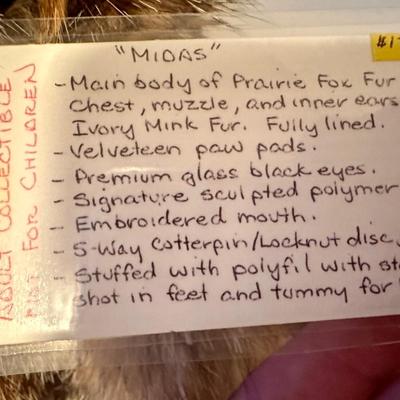 "MIDAS"
- Main body of Prairie Fox Fur
Chest, muzzle, and inner ears
Ivory Mink Fur. Fully lined.
- Velveteen paw pads.
- Premium glass black eyes.
- Signature sculpted polymer
- Embroidered mouth.
- 5-Way Cotterpin/Locknut disc.
- Stuffed with polyfil with
shot in feet and tummy for
ADULT COLLECTIBLE
NOT FOR CHILDREN